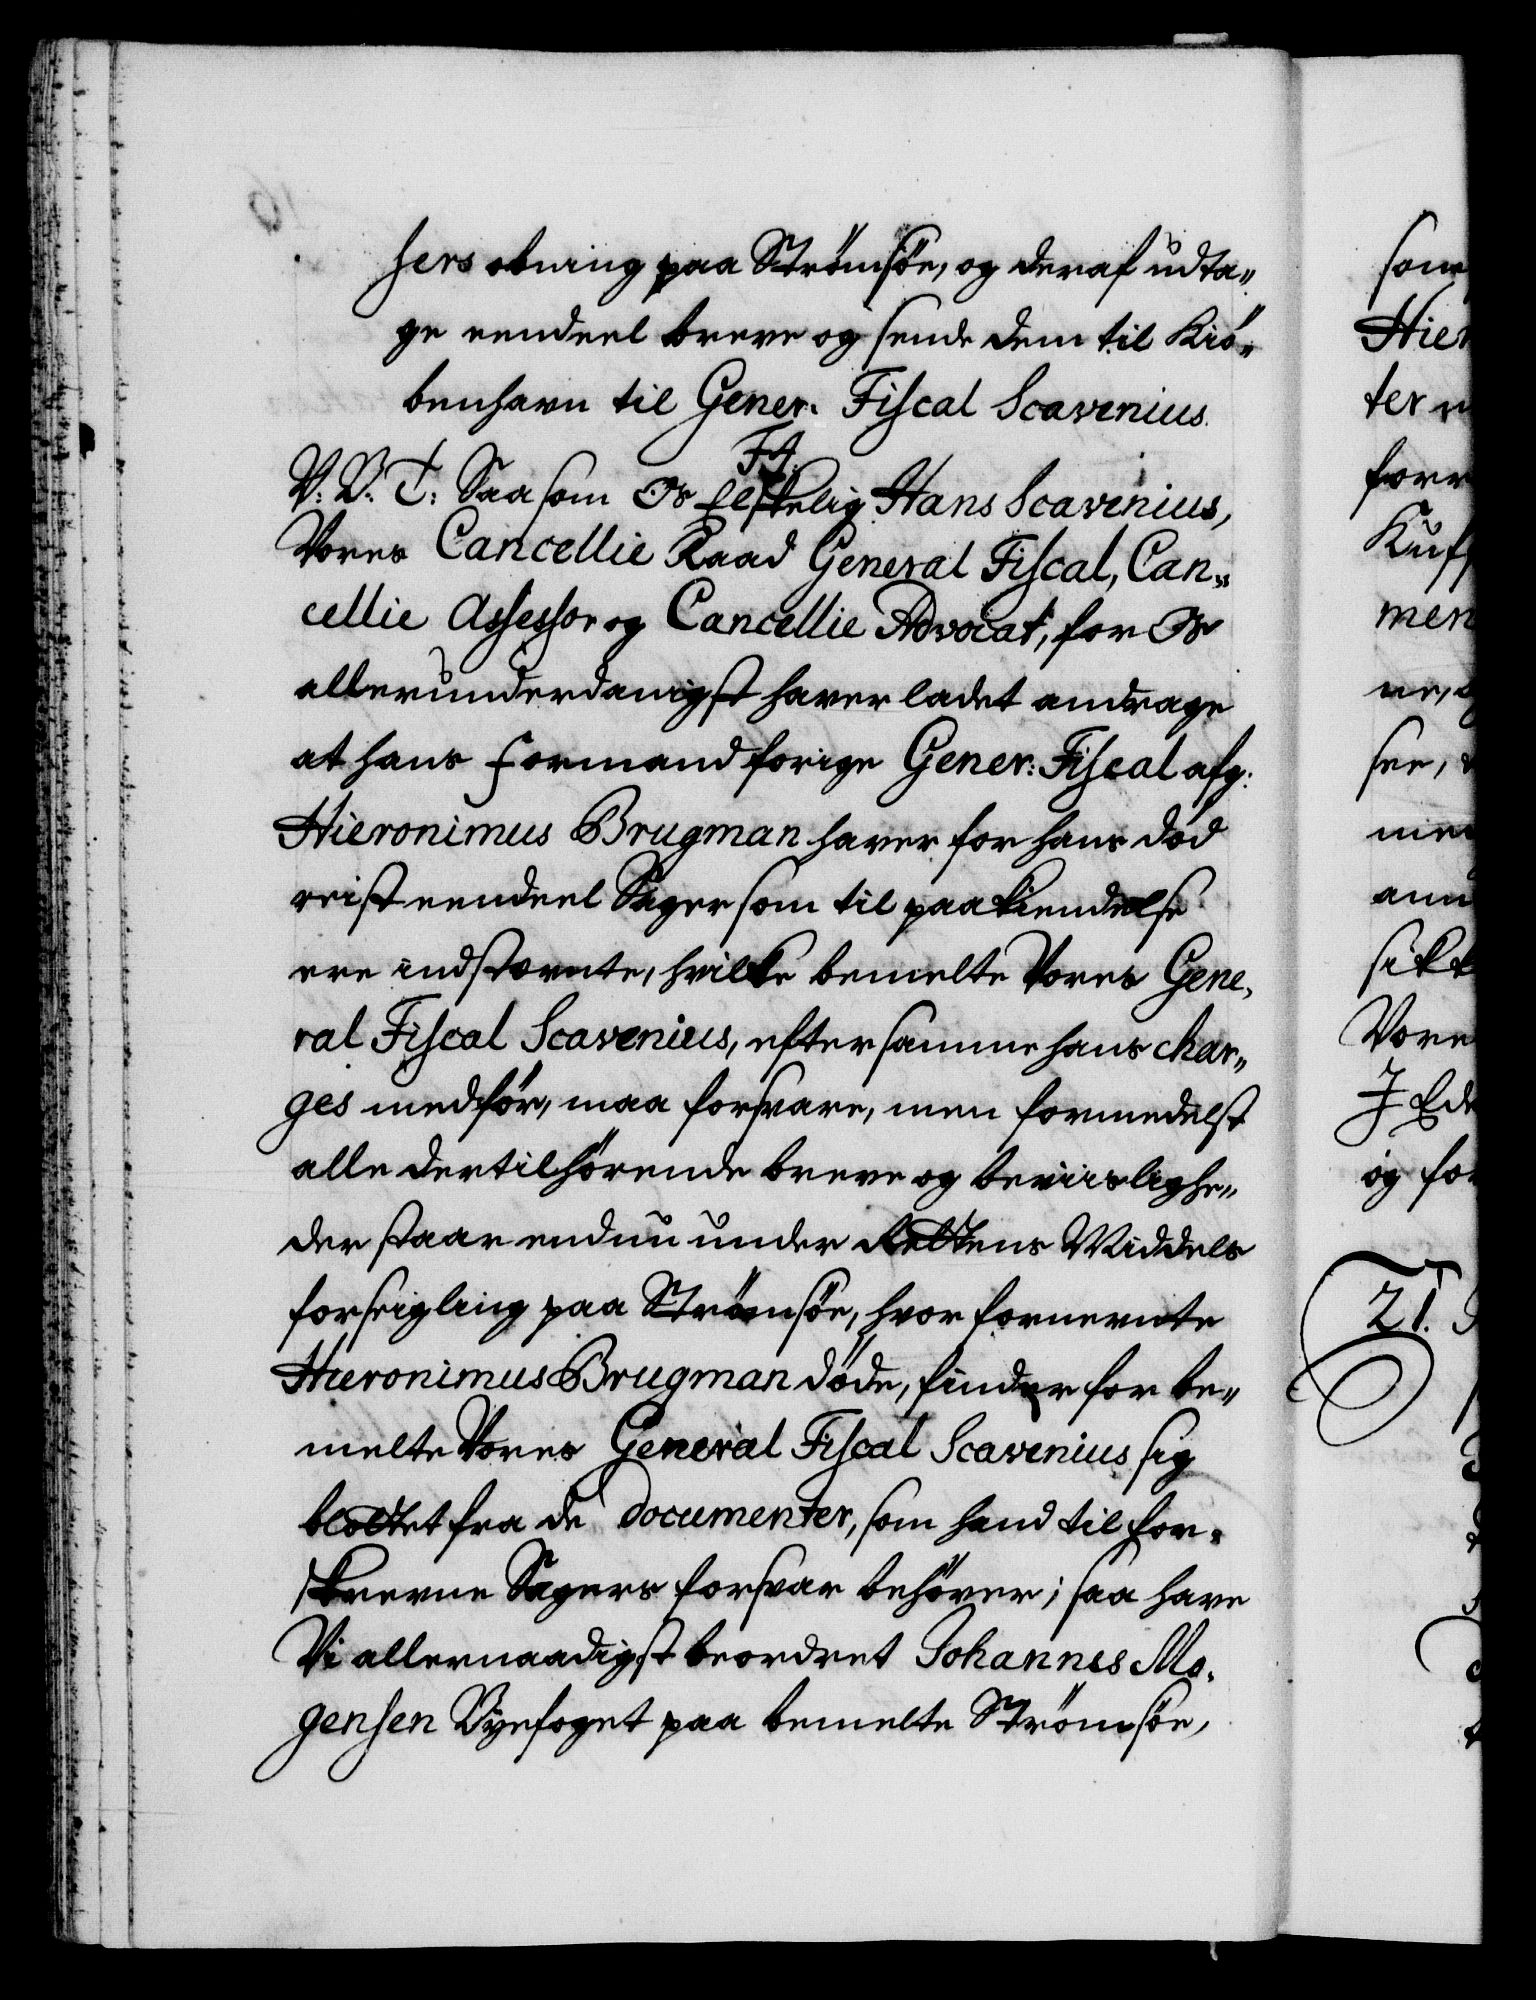 sers obning paa Strömsöe, og deraf udta„
ge eendeel breve og sende dem til Kiö„
benhavn til Gener. Fiscal Scavenius.
F4.
V. G. T: Saasom Os Elskelig Hans Scavenius,
Vores Cancellie Raad General Fiscal, Can„
cellie Assessor og Cancellie Advocat, for Os
allerunderdanigst haver ladet andrage
at hans Formand forige Gener: Fiscal afg:
Hieronimus Brugman haver for hans död
reist eendeel Sager som til paakiendelse
ere indstevnte, hvilke bemelte Vores Gene„
ral Fiscal Scavenius, efter samme hans char„
ges medför, maa forsvare, men formedelst
alle dertilhörende breve og beviisslighe„
der staar endnu under Rettens Middels
forseigling paa Strömsöe, hvor fornevnte
Hieronimus Brugman döde, finder for be„
melte Vores General Fiscal Scavenius sig
blottet fra de documenter, som hand til for„
skrevne Sagers forsvar behöver; saa have
Vi allernaadigst beordret Johannes Mo„
gensen Byefoget paa bemelte Strömsöe,
som
Hier
ter
forr
Kuff
men
ne,
see,
men
ann
sikk
Vore
J Ede
og for
21.